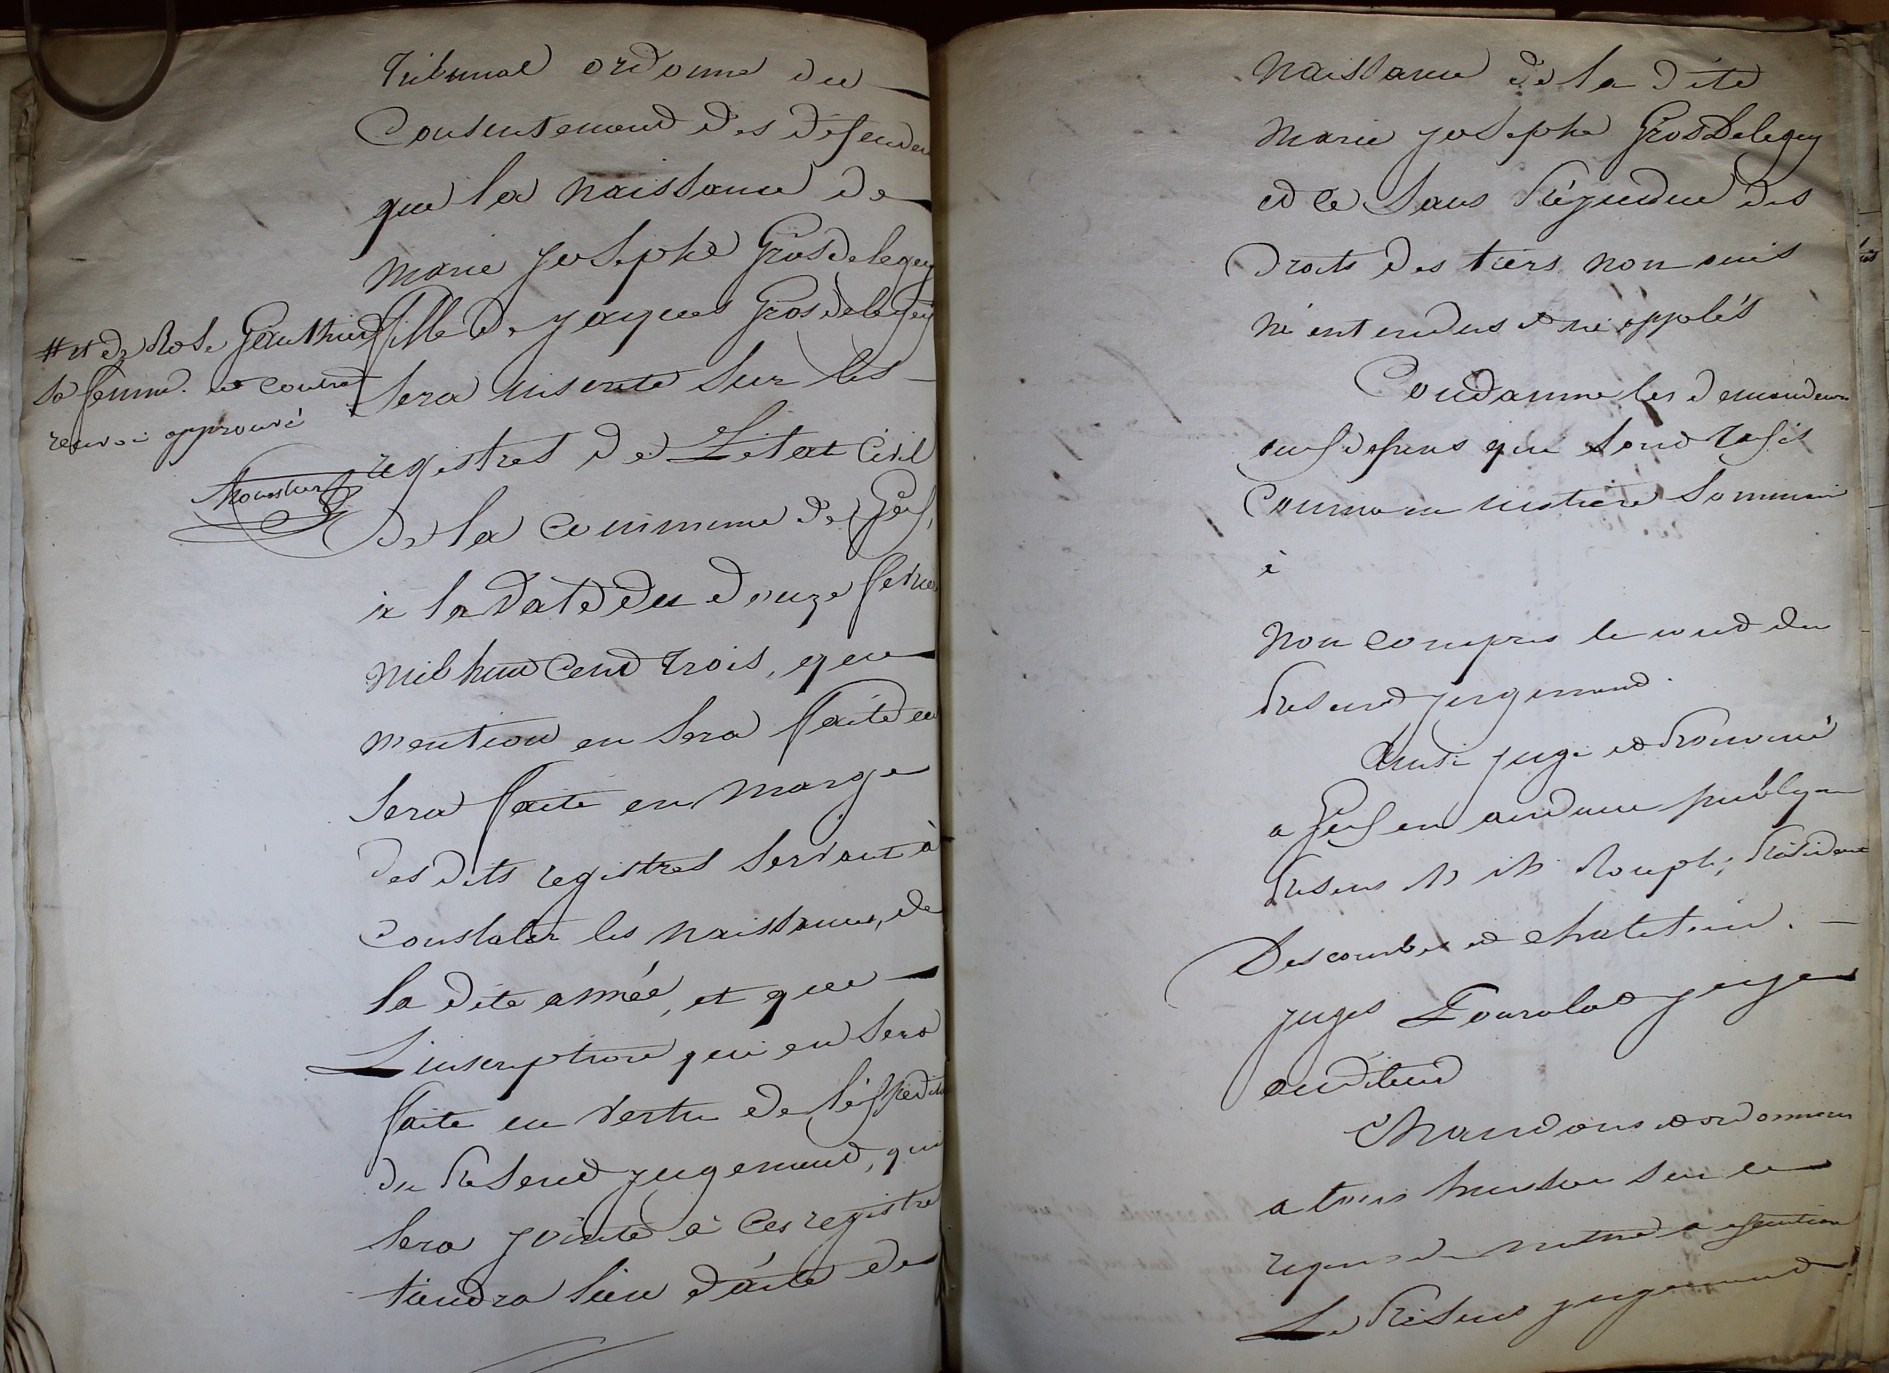 Tribunal ordonne du
Consentement des défendeu
que la naissance de
Marie Josephe Grosdelegey
fille de Jacques Grosdelegey
# et de Rose Gauthier
sa femme. et contre
renvoi approuvé
sera inscrite sur les
registres de L'etat Civil
de la commune de Gex,
à la date du douze fevrier
mil huit cent trois, que
mention en sera faite en
sera faite en marge
des dits registres servant à
Constater les naissances, de
la dite année, et que
L'inscription qui en sera
faite en vertu de l'éxpedit
du présent jugement, qui
sera jointe à ces registres
tiendra lieu d'acte de
Naissance de la dite
Marie Josephe GrosDelegey
et ce sans préjudice des
droits des tiers non ouis
ni entendus et ni appelés
Condamne les demandeurs
aux dépens qui sont taxés
Comme en matière Sommaire
à
Non compris le coût du
présent jugement.
Ainsi jugé et prononcé
a Gex en audience publique
présens M M Rouph, Président
Descombes et
juges juge
auditeur
Mandons et ordonnons
a tous huissier sur ce
requis de mettre a éxécution
Le présent jugement